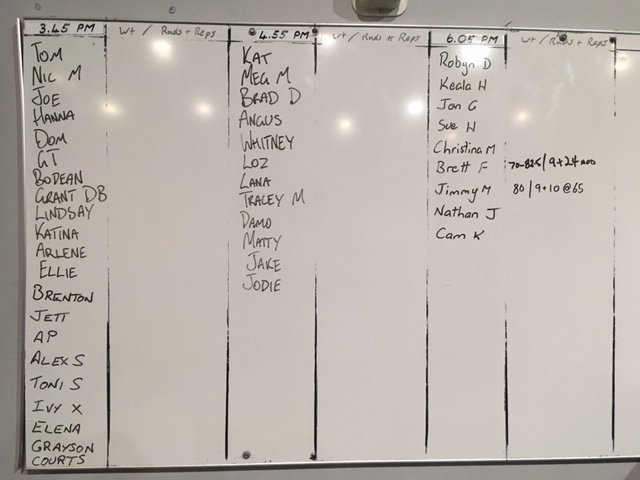 3.45 PM
Wt / Rnds + Reps
TOM
NIC M
JOE
HANNA
DOM
GT
BODEAN
GRANT DB
LINDSAY
KATINA
ARLENE
ELLIE
BRENTON
JETT
AP
ALEX S
TONI S
IVY X
ELENA
GRAYSON
COURTS
4.55 PM
Wt / Rnds + Reps
KAT
MEG M
BRAD D
ANGUS
WHITNEY
LOZ
LANA
TRACEY M
DAMO
MATTY
JAKE
JODIE
6.05 PM
Wt / Rnds + Reps
Robyn D
Keala H
Jon G
Sue H
Christina M
Brett F 70-82.5 / 9+24 MOD
Jimmy M 80 / 9+10 @ 65
Nathan J
Cam K